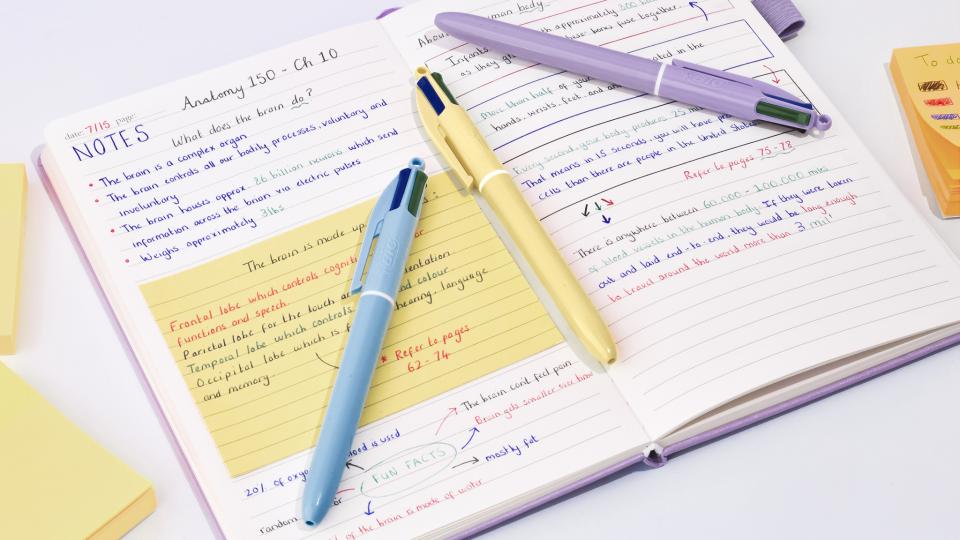 date: 7/15 page:
NOTES
Anatomy 150 - Ch 10
What does the brain do?
• The brain is a complex organ
• The brain controls all our bodily processes, voluntary and
involuntary
• The brain houses approx. 86 billion neurons which send
information across the brain via electric pulses
• Weighs approximately 3lbs
The brain is made up
Frontal lobe which controls
functions and speech.
Parietal lobe for the touch
Temporal lobe which controls and colour
Occipital lobe which is hearing, language
and memory.
* Refer to pages
62 - 74
The brain cant feel pain
Brain gets smaller over time
is used
20% of
FUN FACTS
mostly fat
random
of the brain is made of water
human body
approximately 300
Infants
bones fuse together.
as they
More than half of your located in the
hands, wrists, feet, and
Every second, your body produces 25
That means in 15 seconds, you will have
cells than there are people in the United States
Refer to pages 75 - 78
There is anywhere between 60,000 - 100,000 miles
of blood vessels in the human body. If they were taken
out and laid end-to-end, they would be long enough
to travel around the world more than 3
To do
BIC